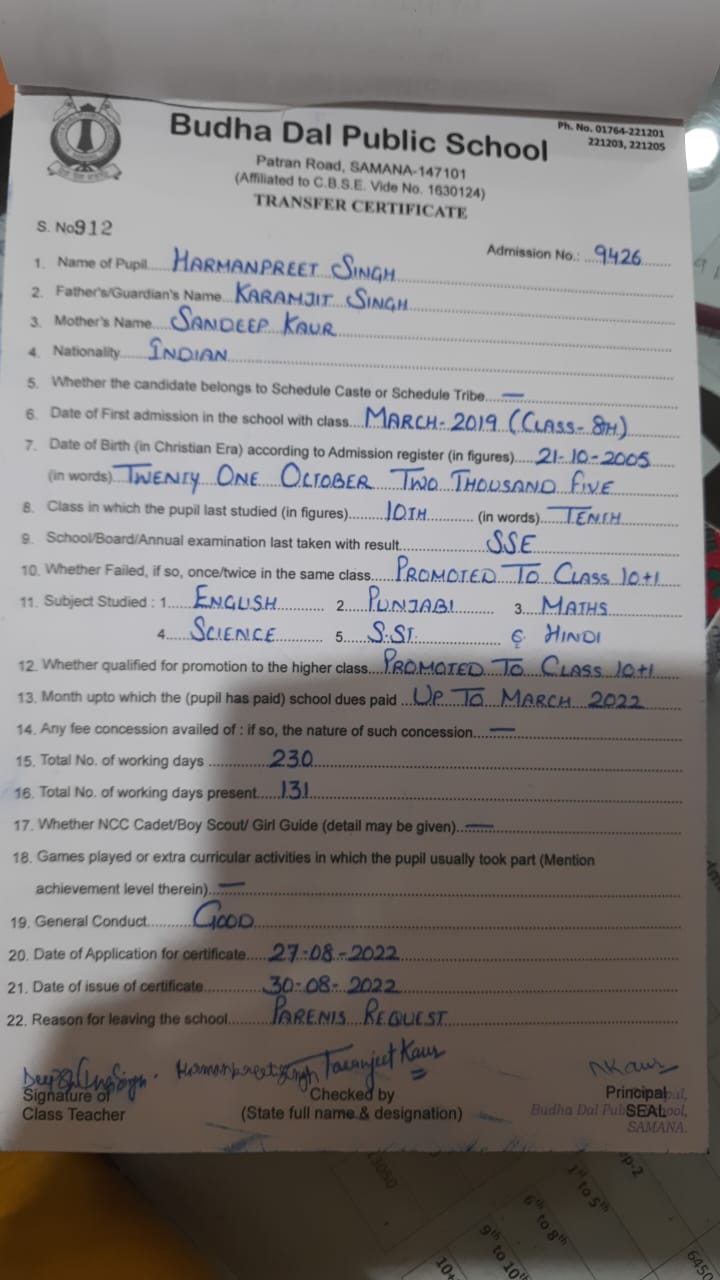 Budha Dal Public School
Ph. No. 01764-221201
221203, 221205
Patran Road, SAMANA-147101
(Affiliated to C.B.S.E. Vide No. 1630124)
TRANSFER CERTIFICATE
S. No912
Admission No.: 9426
1. Name of Pupil HARMANPREET SINGH
2. Father's/Guardian's Name KARAMJIT SINGH
3. Mother's Name SANDEEP KAUR
4. Nationality INDIAN
5. Whether the candidate belongs to Schedule Caste or Schedule Tribe —
6. Date of First admission in the school with class MARCH-2019 (CLASS-8TH)
7. Date of Birth (in Christian Era) according to Admission register (in figures) 21-10-2005
(in words) TWENTY ONE OCTOBER TWO THOUSAND FIVE
8. Class in which the pupil last studied (in figures) 10TH (in words) TENTH
9. School/Board/Annual examination last taken with result SSE
10. Whether Failed, if so, once/twice in the same class PROMOTED TO CLASS 10+1
11. Subject Studied : 1 ENGLISH 2. PUNJABI 3. MATHS
4. SCIENCE 5. S.ST. 6. HINDI
12. Whether qualified for promotion to the higher class PROMOTED TO CLASS 10+1
13. Month upto which the (pupil has paid) school dues paid UP TO MARCH 2022
14. Any fee concession availed of : if so, the nature of such concession —
15. Total No. of working days 230
16. Total No. of working days present 131
17. Whether NCC Cadet/Boy Scout/ Girl Guide (detail may be given) —
18. Games played or extra curricular activities in which the pupil usually took part (Mention
achievement level therein) —
19. General Conduct GOOD
20. Date of Application for certificate 27-08-2022
21. Date of issue of certificate 30-08-2022
22. Reason for leaving the school PARENTS REQUEST
Harmanpreet Singh Taranjeet Kaur
Signature of
Class Teacher
Checked by
(State full name & designation)
Principal
SEAL
Budha Dal Public School,
SAMANA.
13050
1st to 5th
6th to 8th
9th to 10th
10+
6450